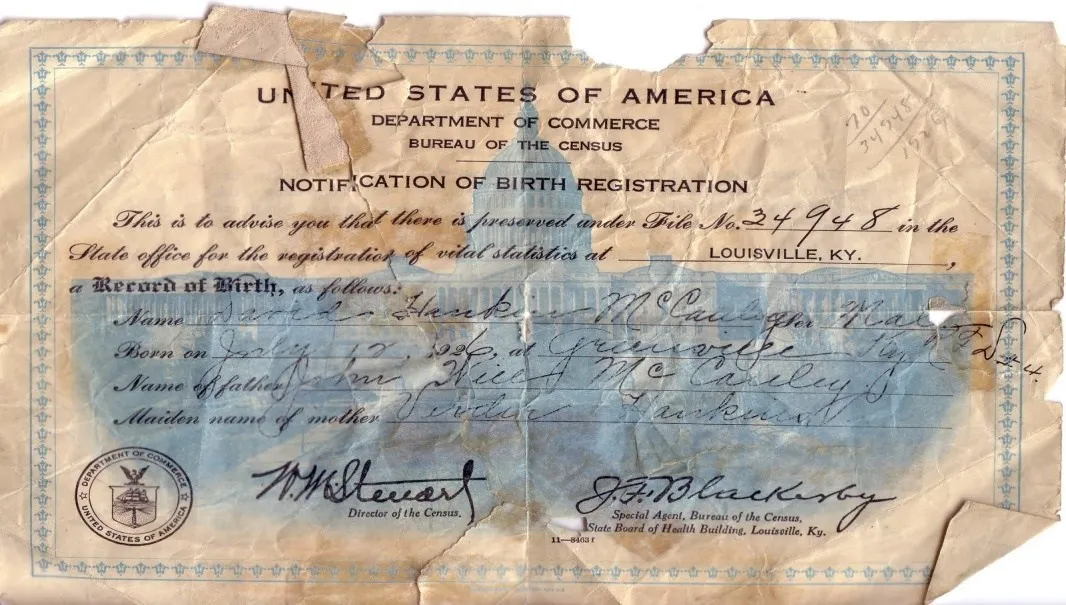 UNITED STATES OF AMERICA
DEPARTMENT OF COMMERCE
BUREAU OF THE CENSUS
NOTIFICATION OF BIRTH REGISTRATION
70
34948
This is to advise you that there is preserved under File No. 34948 in the
State office for the registration of vital statistics at LOUISVILLE, KY.,
a Record of Birth, as follows:
Name David Hankin McCauley Sex Male
Born on July 12, 1926, at Greenville Ky R F D #4.
Name of father John Hill McCauley
Maiden name of mother Hankins
DEPARTMENT OF COMMERCE
UNITED STATES OF AMERICA
W. M. Steuart
Director of the Census.
J. F. Blackerby
Special Agent, Bureau of the Census,
State Board of Health Building, Louisville, Ky.
11—8463f